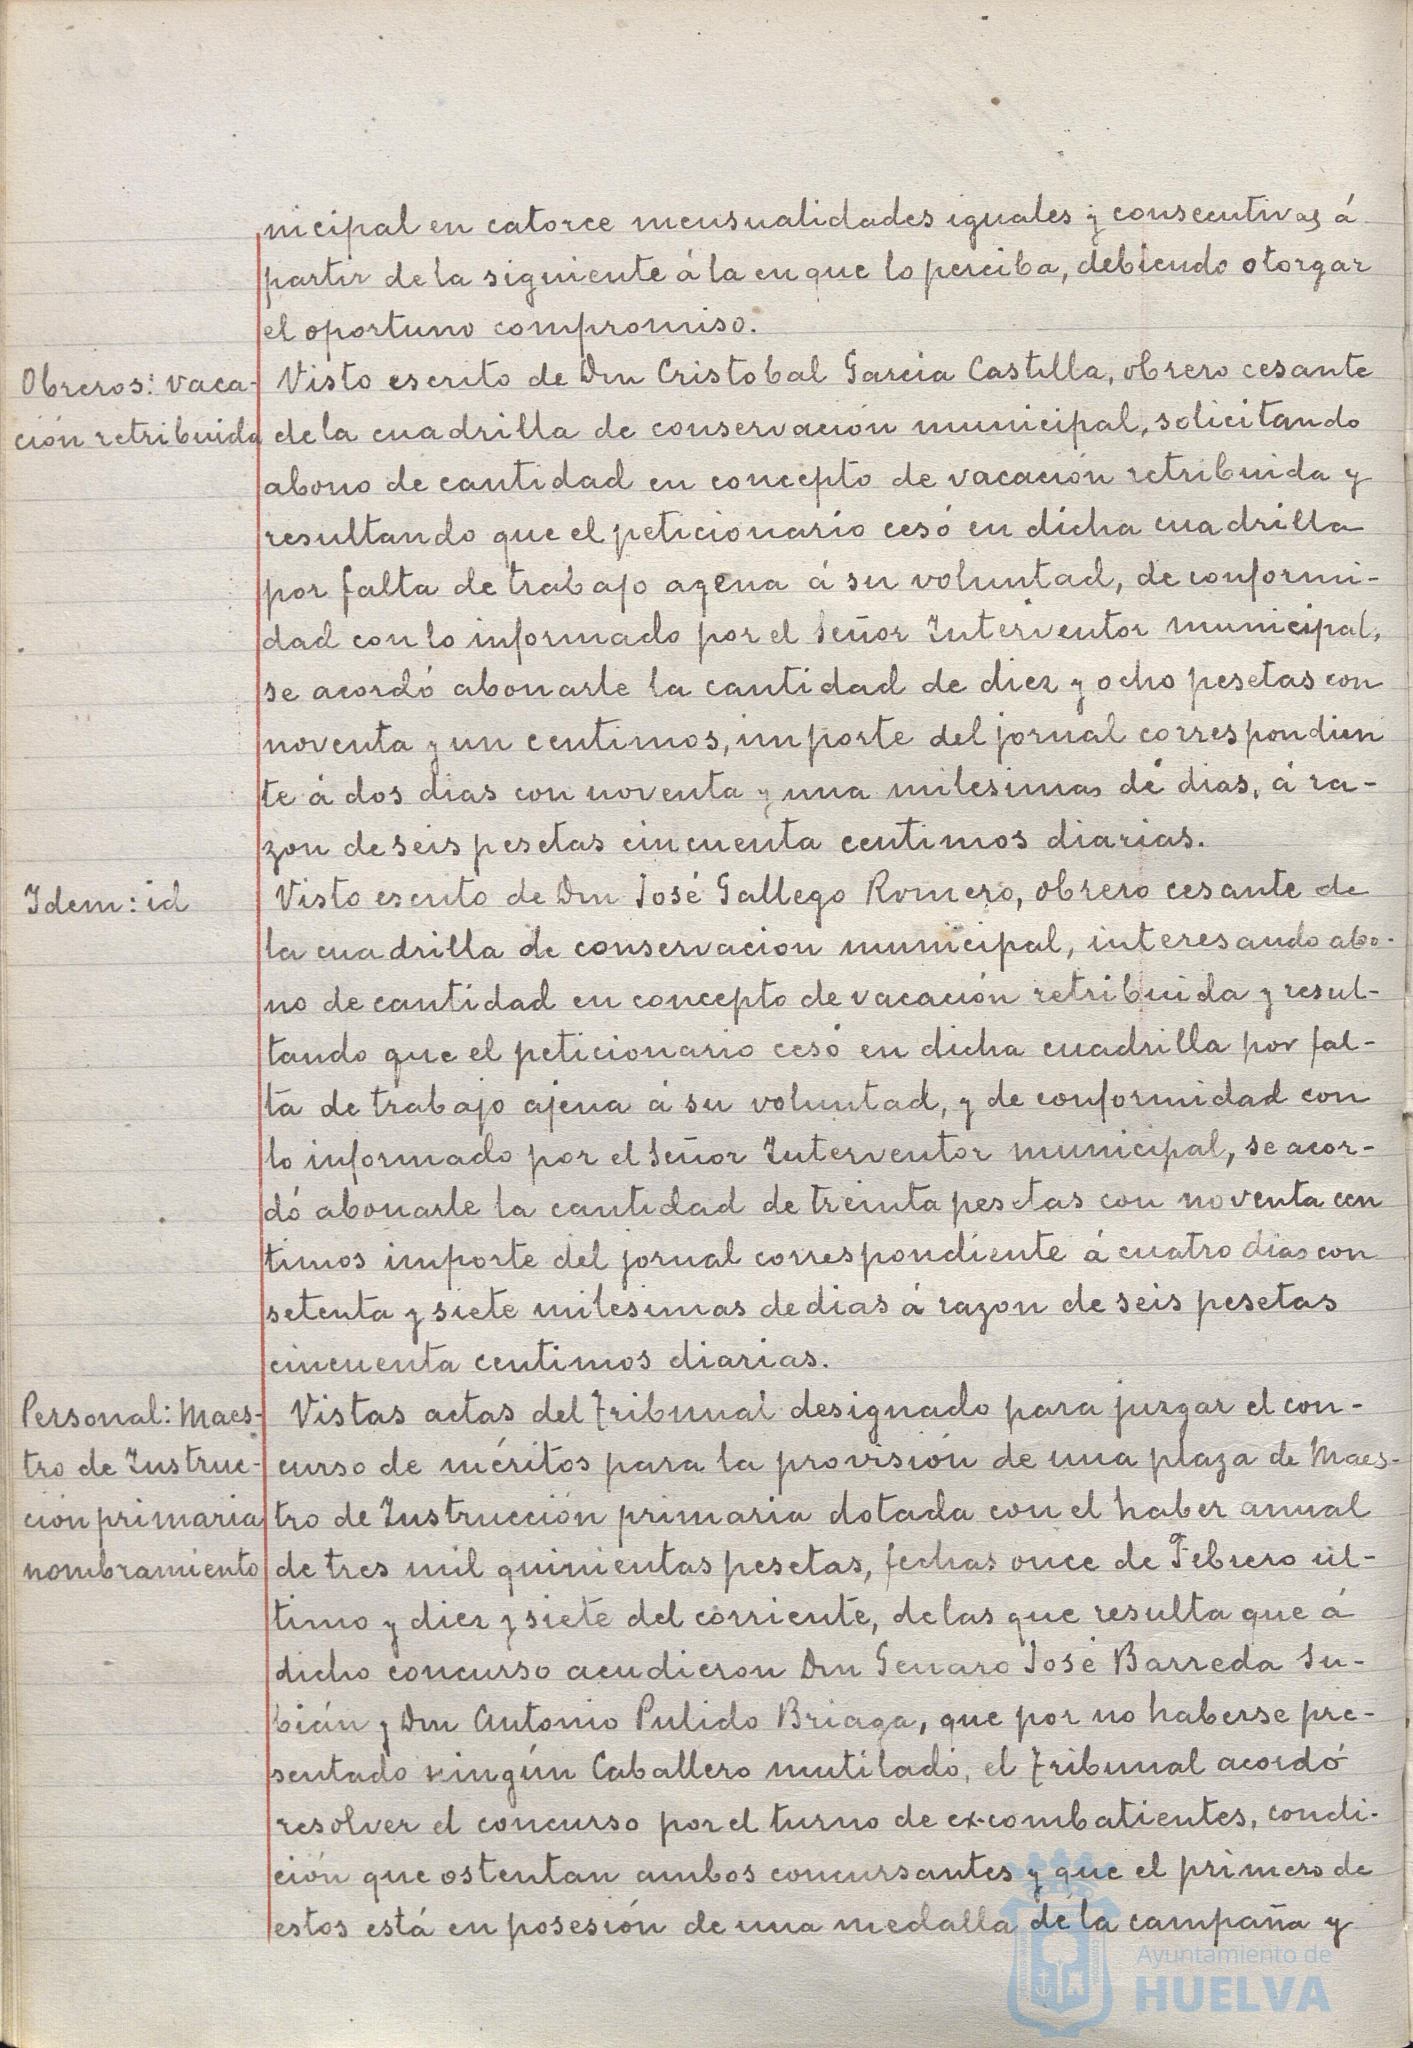 nicipal en catorce mensualidades iguales y consecutivas á
partir de la siguiente á la en que lo perciba, debiendo otorgar
el oportuno compromiso.
Obreros: vaca-
ción retribuida
Visto escrito de Don Cristobal Garcia Castilla, obrero cesante
de la cuadrilla de conservación municipal, solicitando
abono de cantidad en concepto de vacación retribuida y
resultando que el peticionario cesó en dicha cuadrilla
por falta de trabajo agena á su voluntad, de conformi-
dad con lo informado por el Señor Interventor municipal,
se acordó abonarle la cantidad de diez y ocho pesetas con
noventa y un centimos, importe del jornal correspondien
te á dos dias con noventa y una milesimas de dias, á ra-
zon de seis pesetas cincuenta centimos diarias.
Idem: id
Visto escrito de Don José Gallego Romero, obrero cesante de
la cuadrilla de conservacion municipal, interesando abo-
no de cantidad en concepto de vacación retribuida y resul-
tando que el peticionario cesó en dicha cuadrilla por fal-
ta de trabajo ajena á su voluntad, y de conformidad con
lo informado por el Señor Interventor municipal, se acor-
dó abonarle la cantidad de treinta pesetas con noventa cen
timos importe del jornal correspondiente á cuatro dias con
setenta y siete milesimas de dias á razon de seis pesetas
cincuenta centimos diarias.
Personal: Maes-
tro de Instruc-
ción primaria
nombramiento
Vistas actas del Tribunal designado para juzgar el con-
curso de méritos para la provisión de una plaza de Maes-
tro de Instrucción primaria dotada con el haber anual
de tres mil quinientas pesetas, fechas once de Febrero úl-
timo y diez y siete del corriente, de las que resulta que á
dicho concurso acudieron Don Genaro José Barreda Su-
bián y Don Antonio Pulido Briaga, que por no haberse pre-
sentado ningún Caballero mutilado, el Tribunal acordó
resolver el concurso por el turno de ex-combatientes, condi-
ción que ostentan ambos concursantes y que el primero de
estos está en posesión de una medalla de la campaña y
Ayuntamiento de
HUELVA